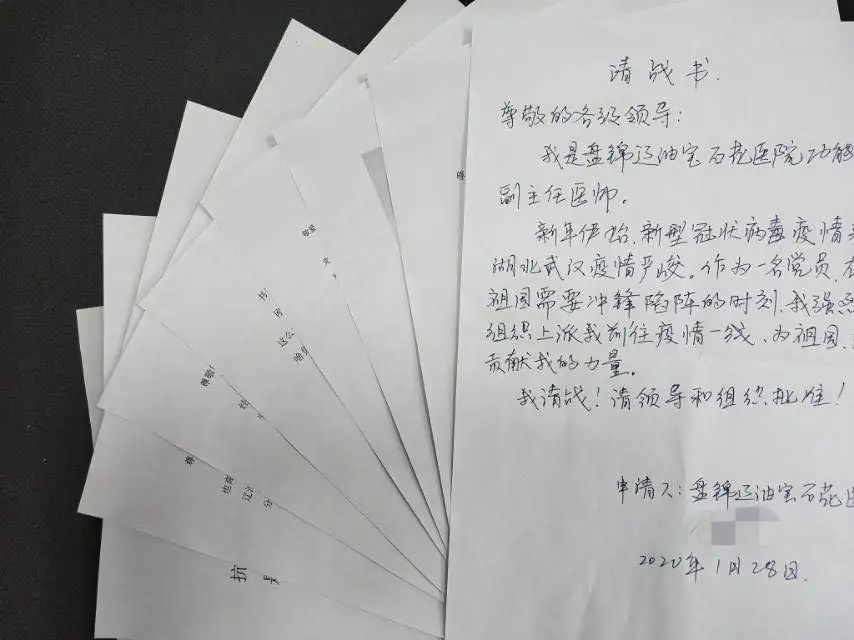 请战书.
尊敬的各级领导:
我是盘锦辽油宝石花医院功能
副主任医师。
新年伊始,新型冠状病毒疫情
湖北武汉疫情严峻。作为一名党员,在
祖国需要冲锋陷阵的时刻,我强烈
组织上派我前往疫情一线、为祖国、
贡献我的力量。
我请战!请领导和组织批准!
申请人:盘锦辽油宝石花医
2020年1月28日.
敬爱
书
这么
尊敬
经
也需
辽
分
抗